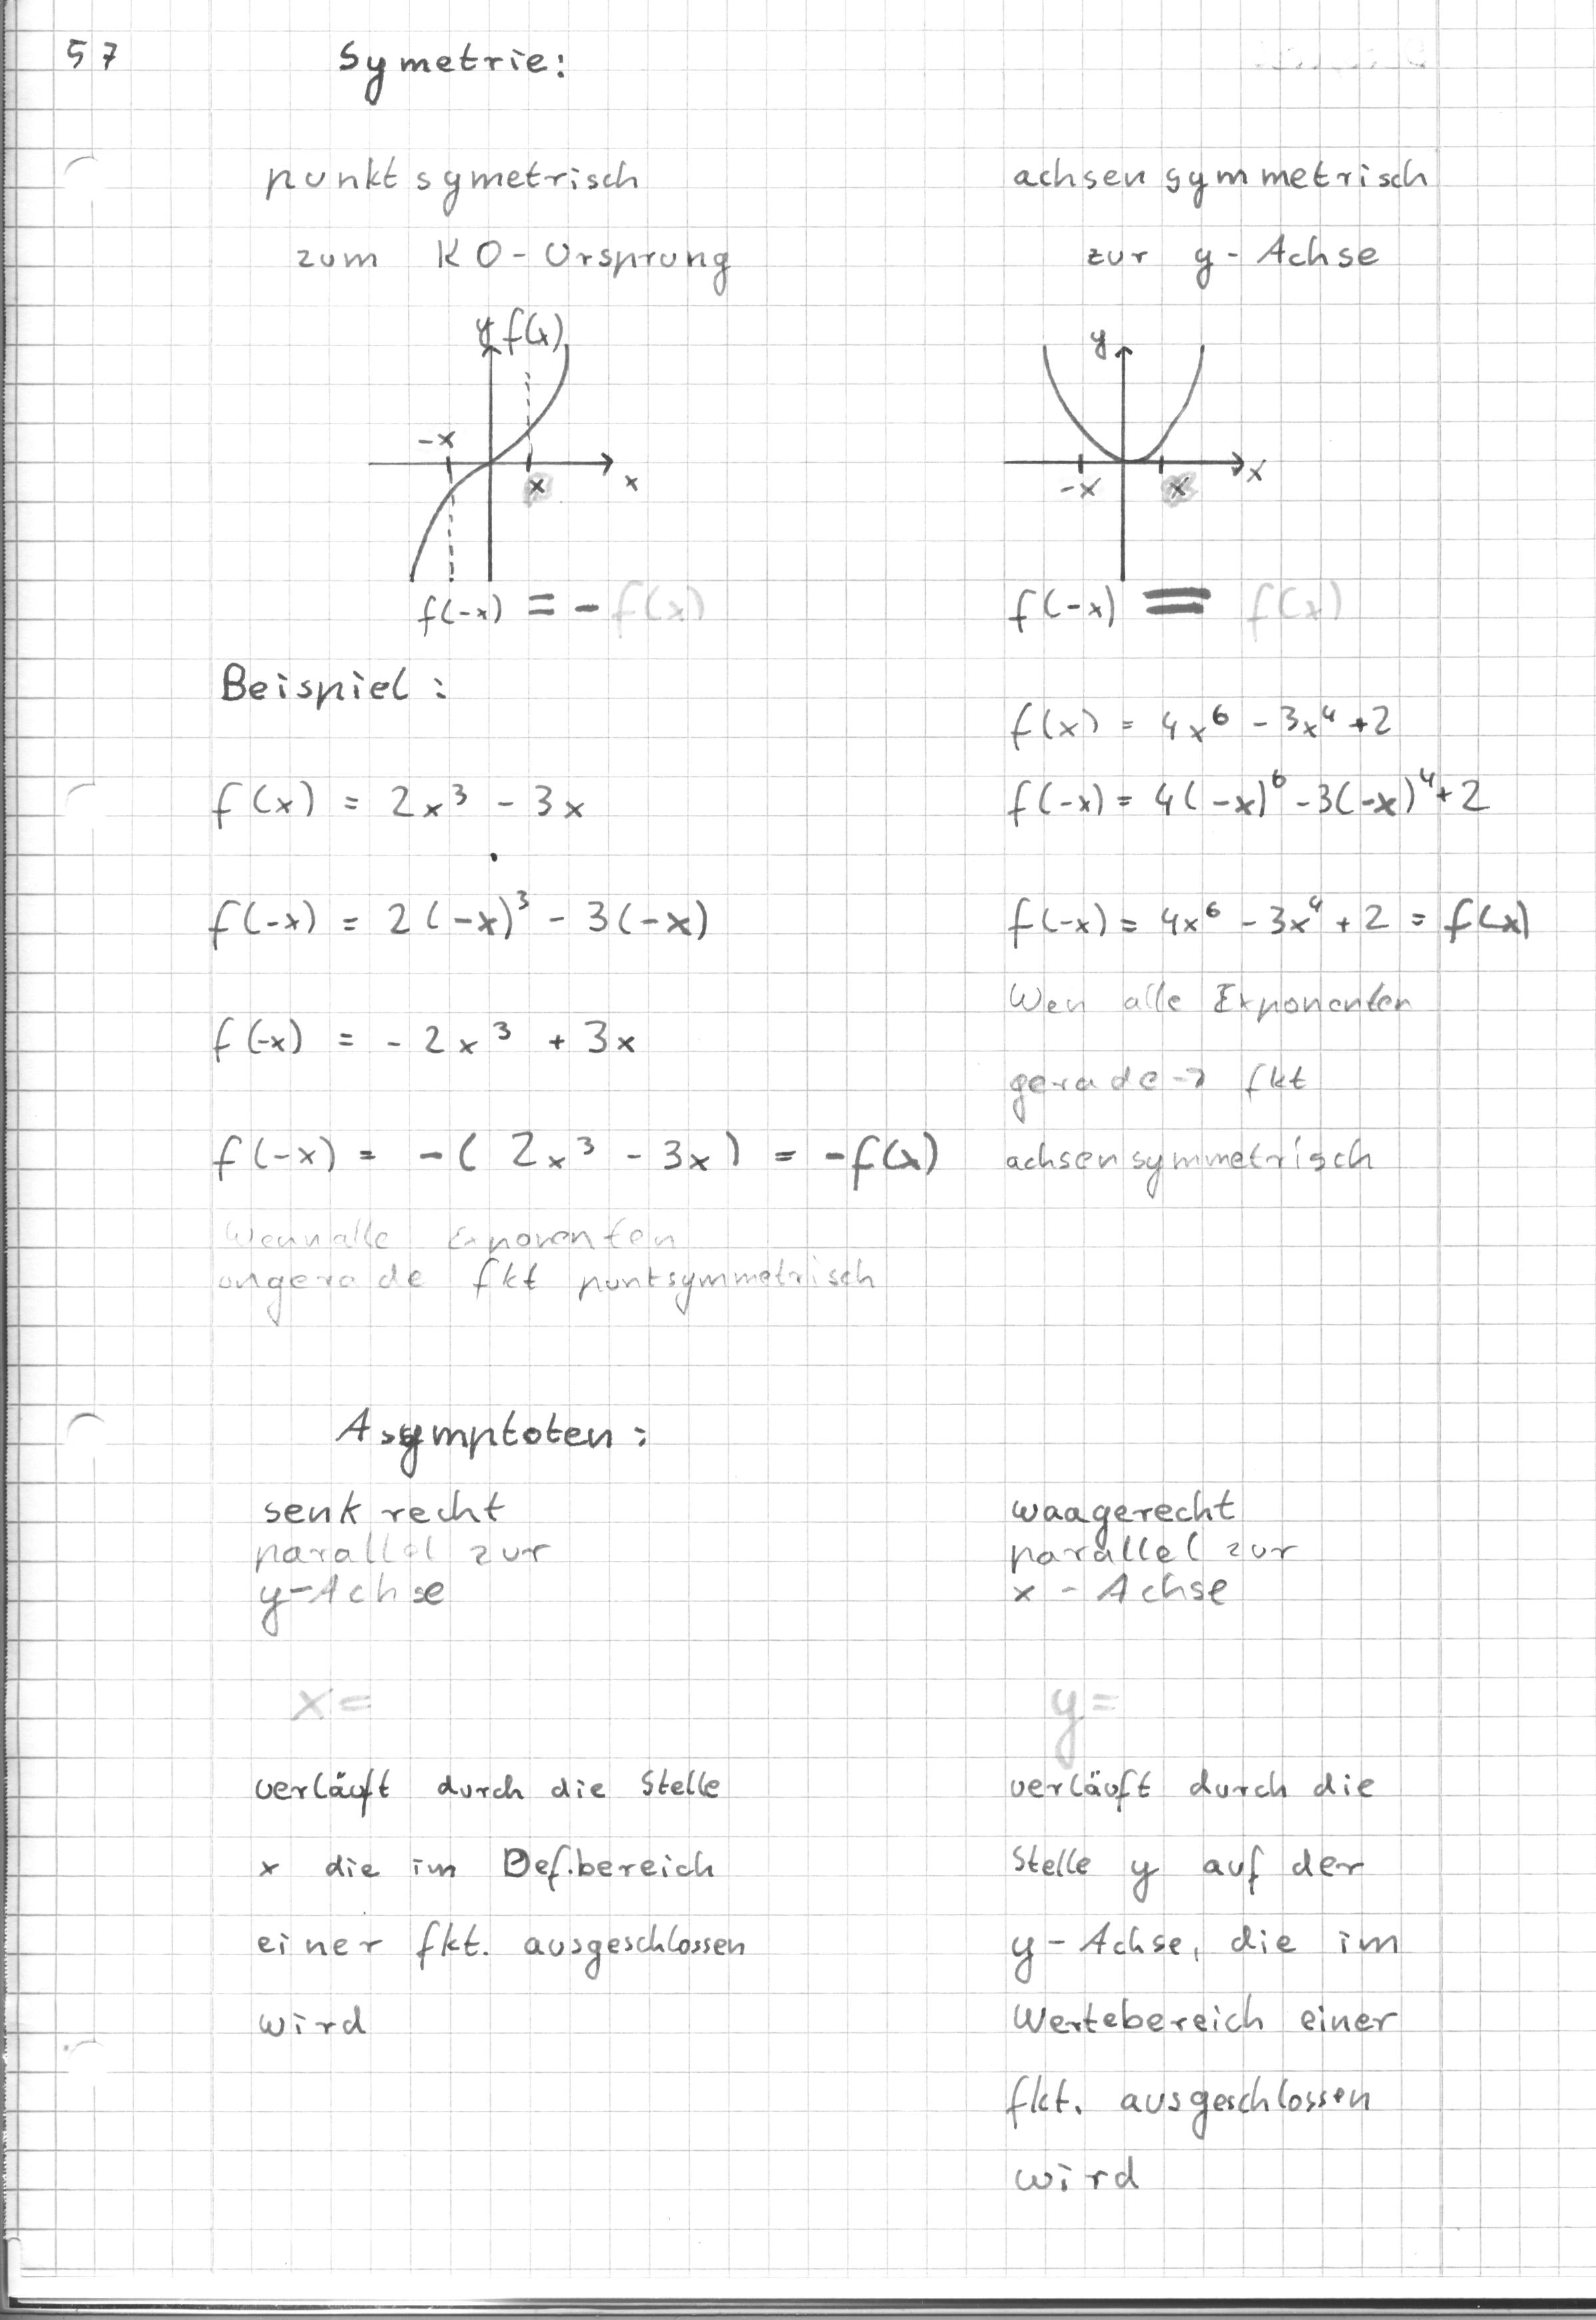 57
Symetrie:
punktsymetrisch
zum KO-Ursprung
y f(x)
-x
x
x
f(-x) = - f(x)
achsensymmetrisch
zur y-Achse
y
-x
x
x
f(-x) = f(x)
Beispiel:
f(x) = 2x³ - 3x
f(-x) = 2(-x)³ - 3(-x)
f(-x) = - 2x³ + 3x
f(-x) = -( 2x³ - 3x) = -f(x)
Wenn alle Exponenten
ungerade fkt puntsymmetrisch
f(x) = 4x⁶ - 3x⁴ + 2
f(-x) = 4(-x)⁶ - 3(-x)⁴ + 2
f(-x) = 4x⁶ - 3x⁴ + 2 = f(x)
Wen alle Exponenten
gerade → fkt
achsensymmetrisch
Asymptoten:
senkrecht
parallel zur
y-Achse
x=
verläuft durch die Stelle
x die im Def.bereich
einer fkt. ausgeschlossen
wird
waagerecht
parallel zur
x-Achse
y=
verläuft durch die
Stelle y auf der
y-Achse, die im
Wertebereich einer
fkt. ausgeschlossen
wird